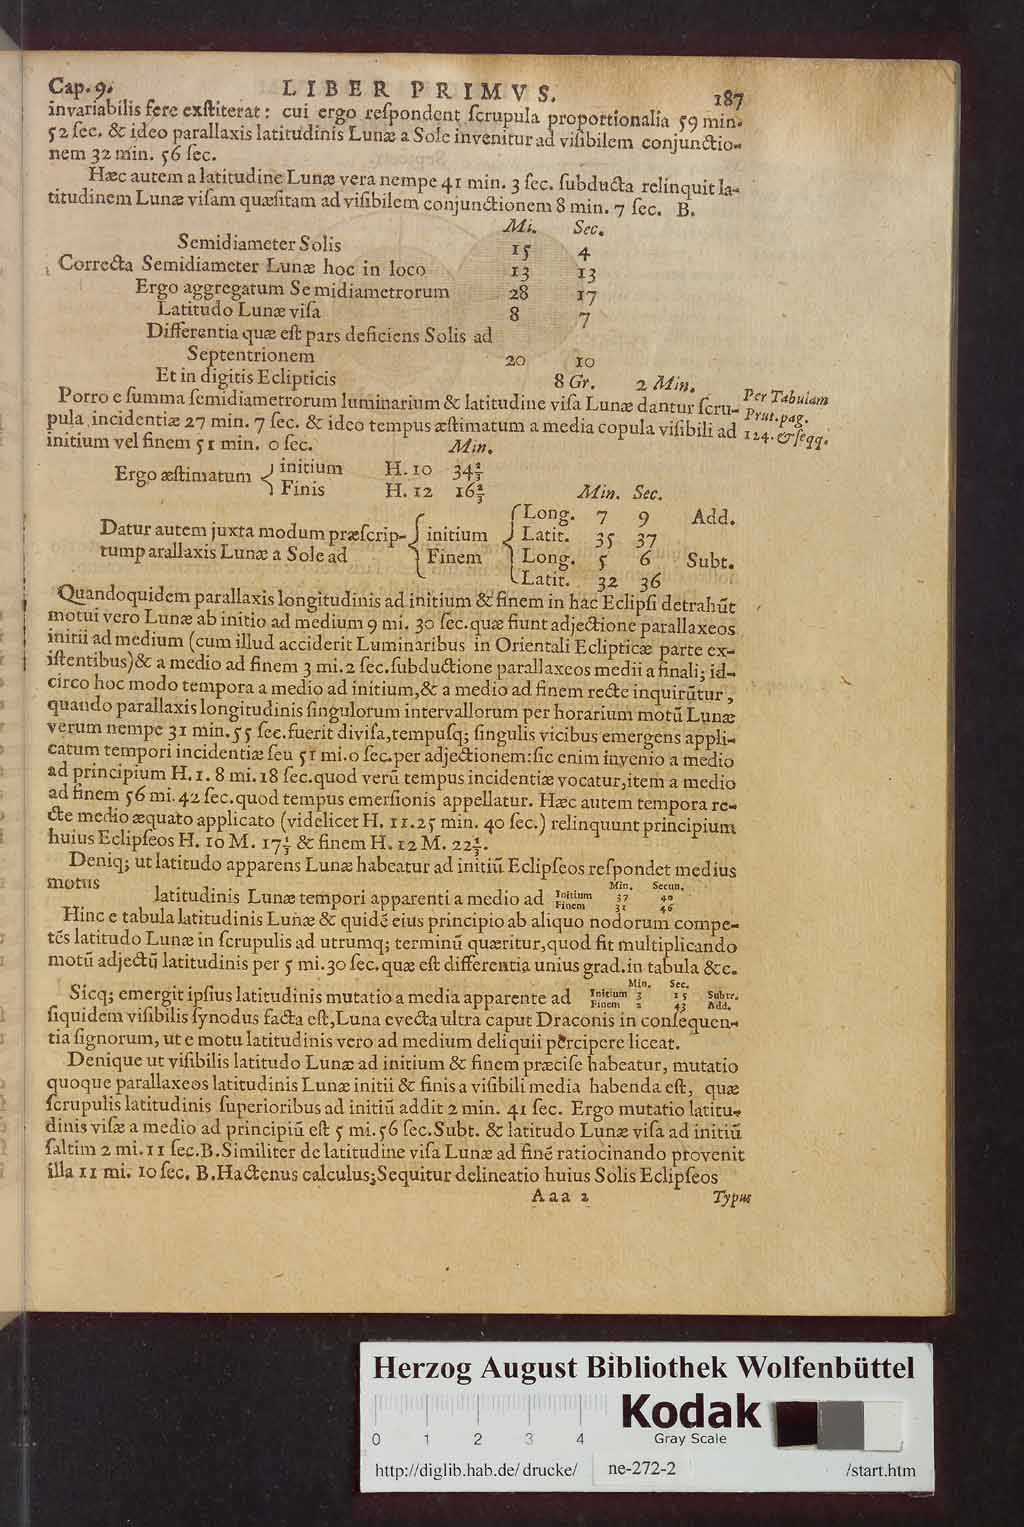 Cap. 9. LIBER PRIMVS. 187
invariabilis fere exſtiterat: cui ergo reſpondent ſcrupula proportionalia 59 min.
52 ſec. & ideo parallaxis latitudinis Lunæ a Sole invenitur ad viſibilem conjunctio-
nem 32 min. 56 ſec.
Hæc autem a latitudine Lunæ vera nempe 41 min. 3 ſec. ſubducta relinquit la-
titudinem Lunæ viſam quæſitam ad viſibilem conjunctionem 8 min. 7 ſec. B.
Mi. Sec.
Semidiameter Solis 15 4
Correcta Semidiameter Lunæ hoc in loco 13 13
Ergo aggregatum Semidiametrorum 28 17
Latitudo Lunæ viſa 8 7
Differentia quæ eſt pars deficiens Solis ad
Septentrionem 20 10
Et in digitis Eclipticis 8 Gr. 2 Min.
Porro e ſumma ſemidiametrorum luminarium & latitudine viſa Lunæ dantur ſcru-
pula incidentiæ 27 min. 7 ſec. & ideo tempus æſtimatum a media copula viſibili ad
initium vel finem 51 min. 0 ſec.
Per Tabulam
Prut. pag.
124. & ſeqq.
Min.
Ergo æſtimatum { initium H. 10 34⅔
Finis H. 12 16⅔
Min. Sec.
Datur autem juxta modum præſcrip-
tum parallaxis Lunæ a Sole ad
{ initium { Long. 7 9 Add.
Latit. 35 37
Finem } Long. 5 6 Subt.
Latit. 32 36
Quandoquidem parallaxis longitudinis ad initium & finem in hac Eclipſi detrahūt
motui vero Lunæ ab initio ad medium 9 mi. 30 ſec. quæ fiunt adjectione parallaxeos
initii ad medium (cum illud acciderit Luminaribus in Orientali Eclipticæ parte ex-
iſtentibus) & a medio ad finem 3 mi. 2 ſec. ſubductione parallaxeos medii a finali; id-
circo hoc modo tempora a medio ad initium, & a medio ad finem recte inquirūtur,
quando parallaxis longitudinis ſingulorum intervallorum per horarium motū Lunæ
verum nempe 31 min. 55 ſec. fuerit diviſa, tempuſq; ſingulis vicibus emergens appli-
catum tempori incidentiæ ſeu 51 mi. 0 ſec. per adjectionem: ſic enim invenio a medio
ad principium H. 1. 8 mi. 18 ſec. quod verū tempus incidentiæ vocatur, item a medio
ad finem 56 mi. 42 ſec. quod tempus emerſionis appellatur. Hæc autem tempora re-
cte medio æquato applicato (videlicet H. 11. 25 min. 40 ſec.) relinquunt principium
huius Eclipſeos H. 10 M. 17⅓ & finem H. 12 M. 22⅓.
Deniq; ut latitudo apparens Lunæ habeatur ad initiū Eclipſeos reſpondet medius
motus
Min. Secun.
latitudinis Lunæ tempori apparenti a medio ad Initium 37 40
Finem 31 46
Hinc e tabula latitudinis Lunæ & quidē eius principio ab aliquo nodorum compe-
tēs latitudo Lunæ in ſcrupulis ad utrumq; terminū quæritur, quod fit multiplicando
motū adjectū latitudinis per 5 mi. 30 ſec. quæ eſt differentia unius grad. in tabula &c.
Min. Sec.
Sicq; emergit ipſius latitudinis mutatio a media apparente ad Initium 3 15 Subtr.
Finem 2 43 Add.
ſiquidem viſibilis ſynodus facta eſt, Luna evecta ultra caput Draconis in conſequen-
tia ſignorum, ut e motu latitudinis vero ad medium deliquii percipere liceat.
Denique ut viſibilis latitudo Lunæ ad initium & finem præciſe habeatur, mutatio
quoque parallaxeos latitudinis Lunæ initii & finis a viſibili media habenda eſt, quæ
ſcrupulis latitudinis ſuperioribus ad initiū addit 2 min. 41 ſec. Ergo mutatio latitu-
dinis viſæ a medio ad principiū eſt 5 mi. 56 ſec. Subt. & latitudo Lunæ viſa ad initiū
ſaltim 2 mi. 11 ſec. B. Similiter de latitudine viſa Lunæ ad finē ratiocinando provenit
illa 11 mi. 10 ſec. B. Hactenus calculus; Sequitur delineatio huius Solis Eclipſeos
Aaa 2 Typus
Herzog August Bibliothek Wolfenbüttel
Kodak
Gray Scale
0 1 2 3 4
http://diglib.hab.de/drucke/ ne-272-2 /start.htm